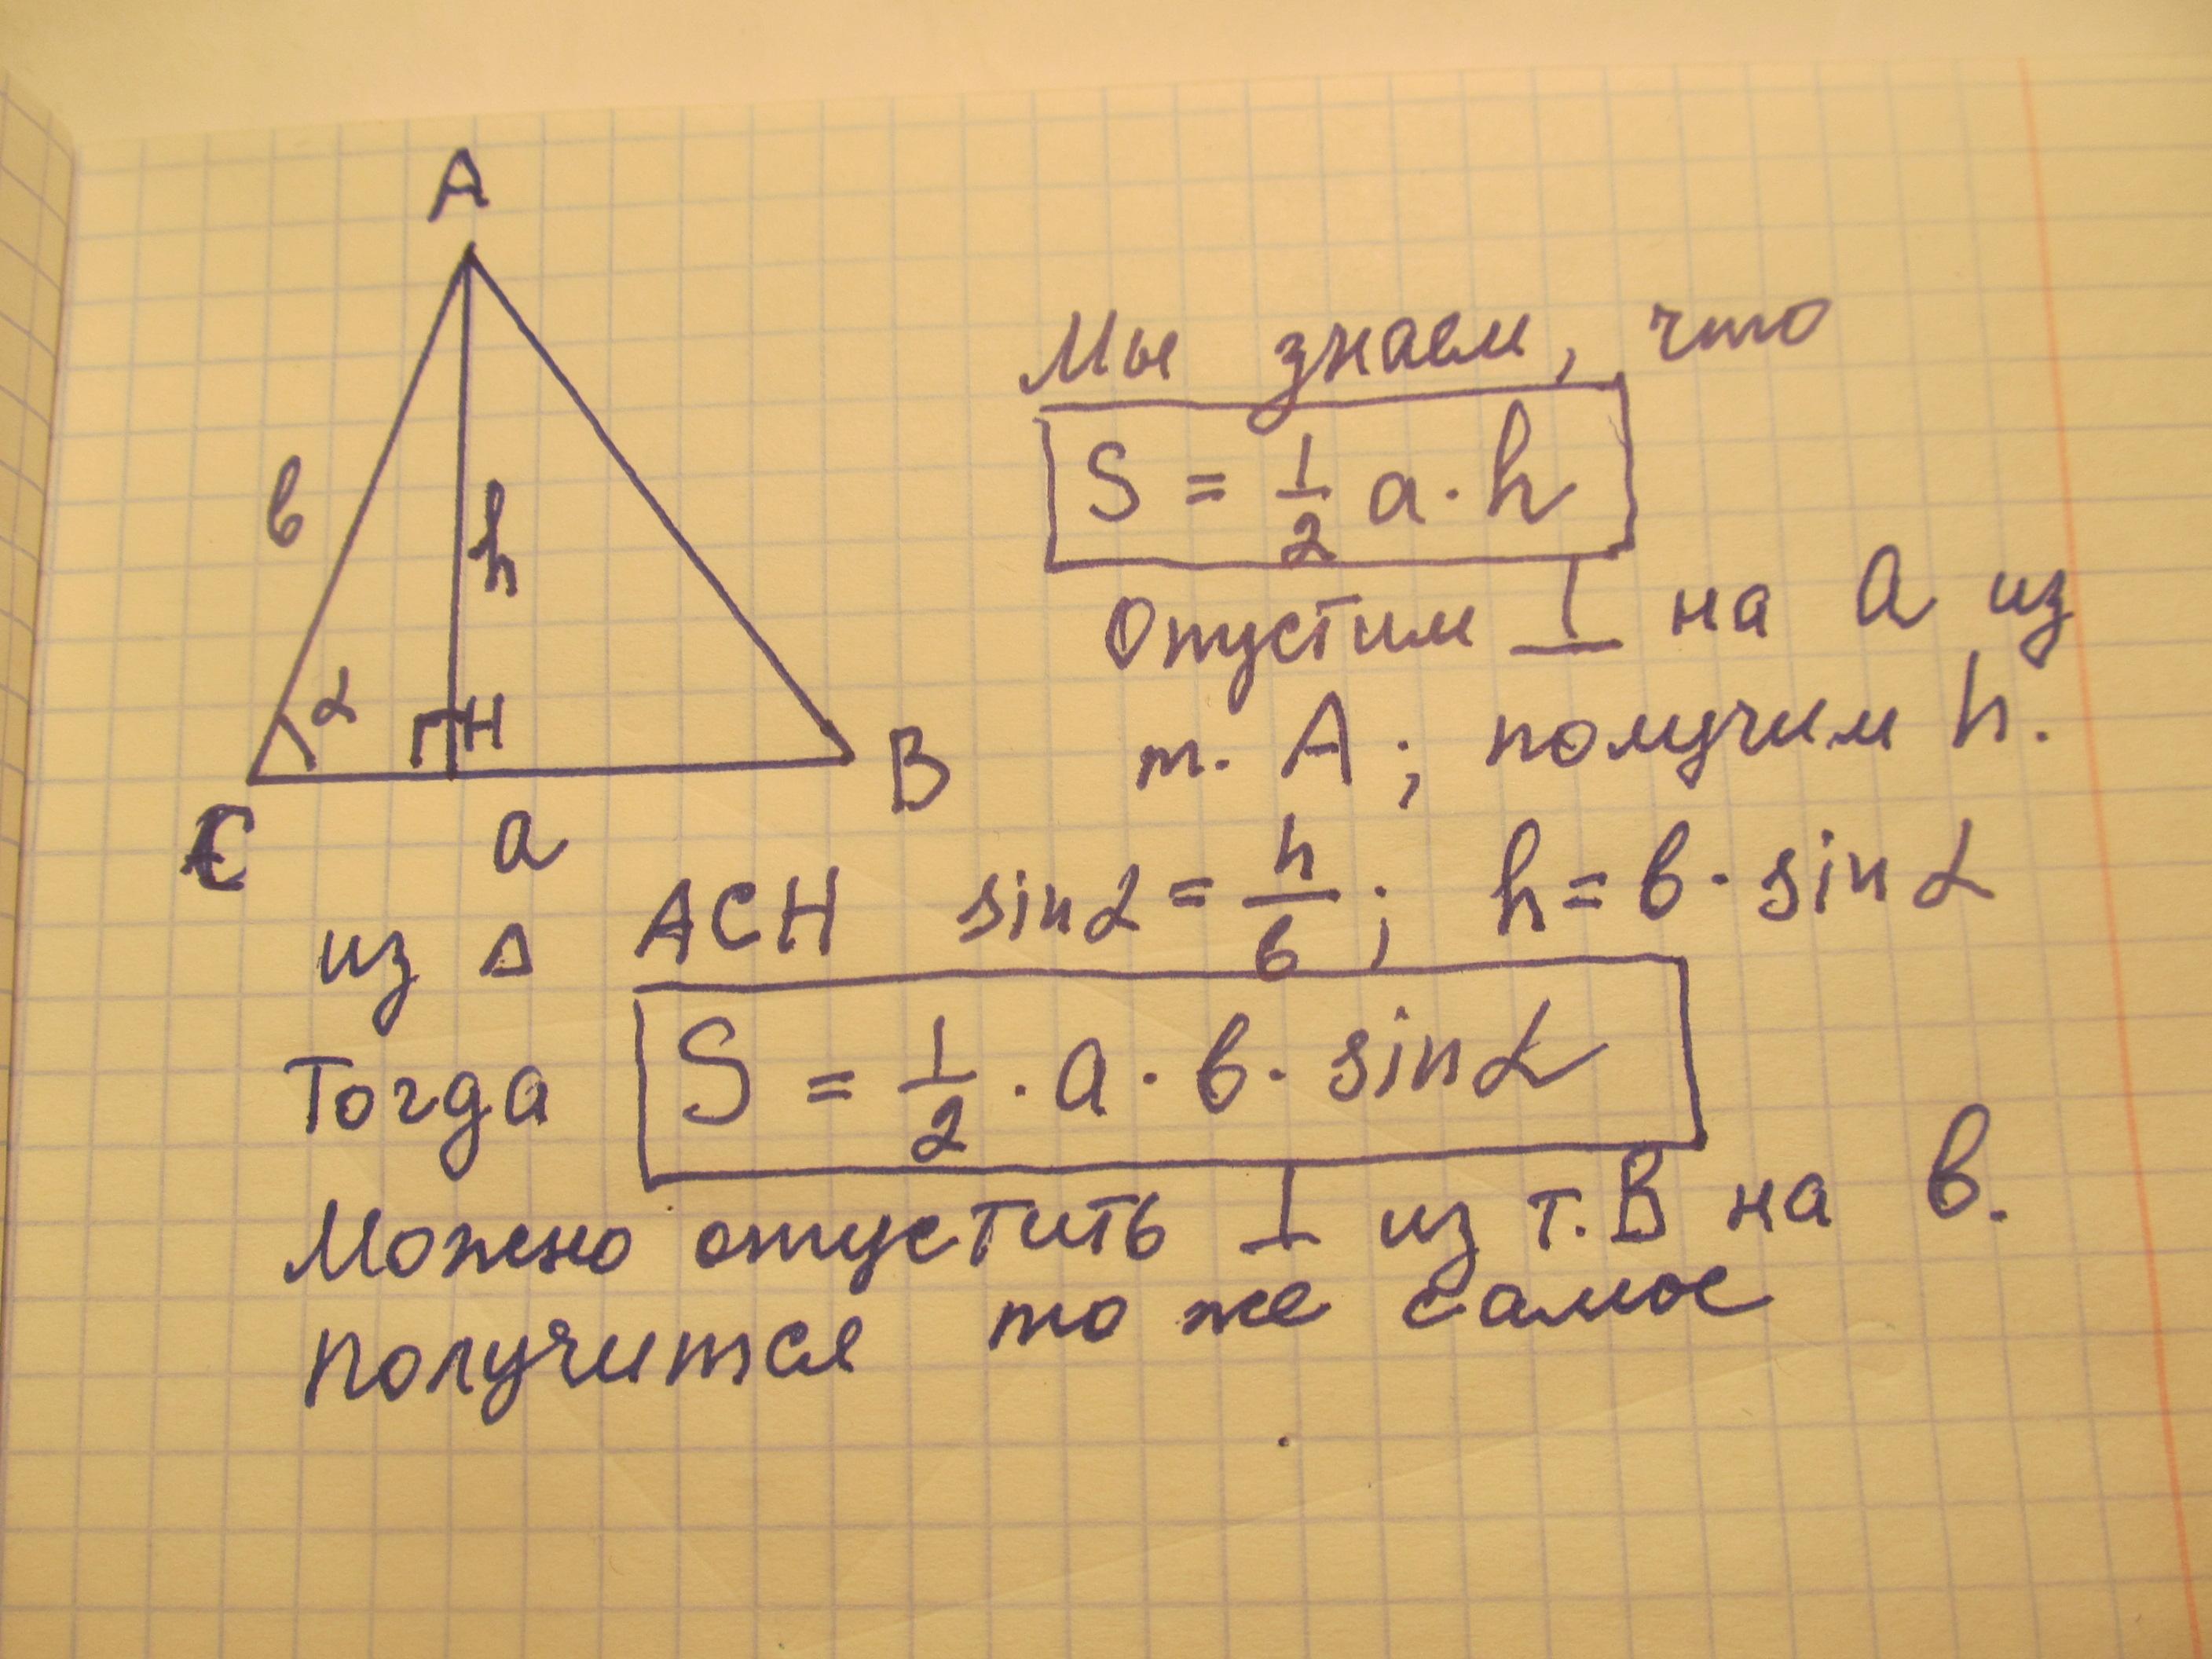 A
в
h
α
H
C
a
B
Мы знаем, что
S = 1/2 a · h
Опустим ⊥ на a из
т. A; получим h.
из Δ ACH sinα = h/в; h = в · sin α
Тогда S = 1/2 · a · в · sin α
Можно опустить ⊥ из т. В на в.
получится то же самое